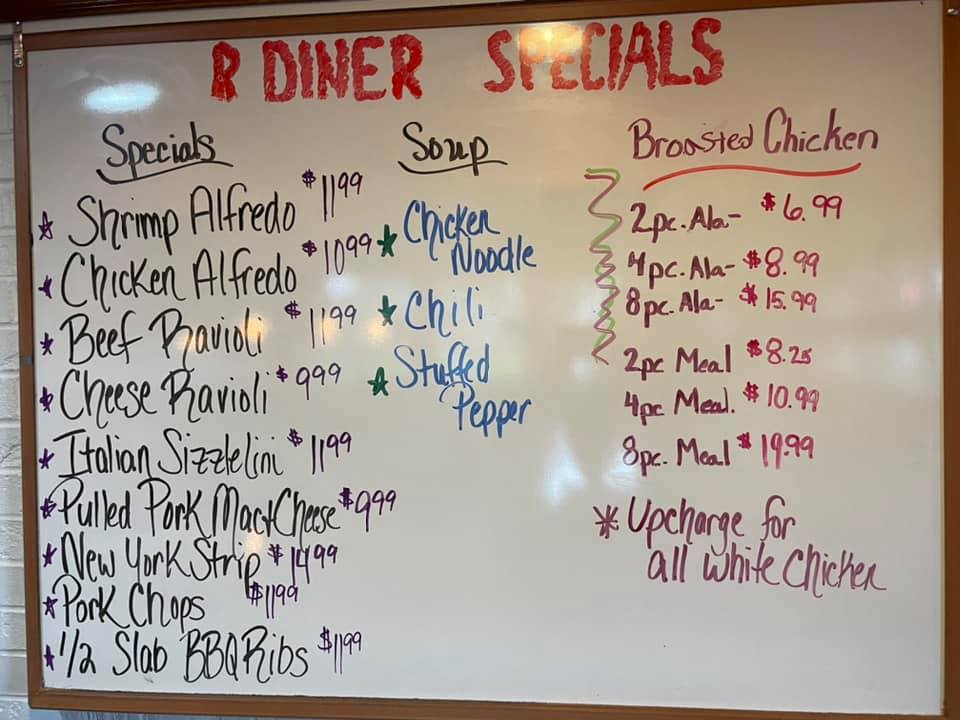 R DINER SPECIALS
Specials
Shrimp Alfredo $11.99
Chicken Alfredo $10.99
Beef Ravioli $11.99
Cheese Ravioli $9.99
Italian Sizzlelini $11.99
Pulled Pork Mac+Cheese $9.99
New York Strip $14.99
Pork Chops $11.99
1/2 Slab BBQ Ribs $11.99
Soup
Chicken
Noodle
Chili
Stuffed
Pepper
Broasted Chicken
2pc. Ala- $6.99
4pc. Ala- $8.99
8pc. Ala- $15.99
2pc Meal $8.25
4pc Meal. $10.99
8pc. Meal $19.99
* Upcharge for
all white Chicken